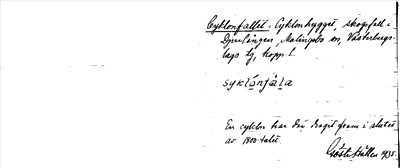 Cyklonfallet. Cyklonhygget, skogsfall i
Djurlången, Malingsbo sn, Västerbergs-
lags tg, Kopp. l.
syklónfàla
En cyklon har där dragit fram i slutet
av 1800-talet.
Gösta Hållén 1935.